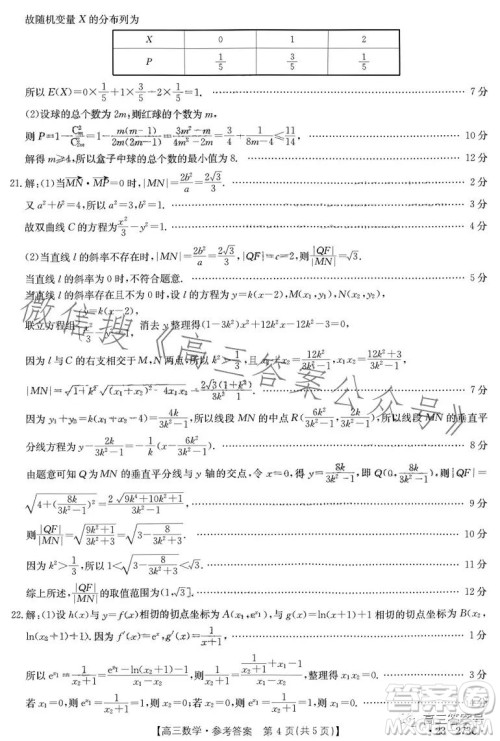 故随机变量 X 的分布列为
X 0 1 2
P 1/5 3/5 1/5
所以 E(X)=0×1/5+1×3/5+2×1/5=1. 7 分
(2)设球的总个数为 2m,则红球的个数为 m.
则 P=1-C²ₘ/C²₂ₘ=1-m(m-1)/2m(2m-1)=(3m²-m)/(4m²-2m)=3/4+1/(8m-4)≤11/14, 10 分
解得 m≥4,所以盒子中球的总个数的最小值为 8. 12 分
21. 解:(1)当 MN·MP=0 时,|MN|=2b²/a=2√3/3. 2 分
又 a²+b²=4,所以 a²=3,b²=1. 3 分
故双曲线 C 的方程为 x²/3-y²=1. 4 分
(2)当直线 l 的斜率不存在时,|MN|=2b²/a=2√3/3,|QF|=c=2,则|QF|/|MN|=√3.
当直线 l 的斜率为 0 时,不符合题意. 5 分
当直线 l 的斜率存在且不为 0 时,设 l 的方程为 y=k(x-2),M(x₁,y₁),N(x₂,y₂),
联立方程组 消去 y 整理得(1-3k²)x²+12k²x-12k²-3=0.
因为 l 与 C 的右支相交于 M,N 两点,所以 k²>1/3,x₁+x₂=12k²/(3k²-1),x₁x₂=(12k²+3)/(3k²-1).
|MN|=√(1+k²)√((x₁+x₂)²-4x₁x₂)=2√3(1+k²)/(3k²-1). 7 分
因为 y₁+y₂=k(x₁+x₂-4)=4k/(3k²-1),所以线段 MN 的中点 R(6k²/(3k²-1),2k/(3k²-1)),所以线段 MN 的垂直平
分线方程为 y-2k/(3k²-1)=-1/k(x-6k²/(3k²-1)). 8 分
由题意可知 Q 为 MN 的垂直平分线与 y 轴的交点,令 x=0,得 y=8k/(3k²-1),即 Q(0,8k/(3k²-1)),则|QF|=
√(4+(8k/(3k²-1))²)=2√(9k⁴+10k²+1)/(3k²-1). 9 分
则|QF|/|MN|=√((9k²+1)/(3k²+3))=√(3-8/(3k²+3)). 10 分
因为 k²>1/3,所以 1<√(3-8/(3k²+3))<√3. 11 分
综上所述,|QF|/|MN|的取值范围为(1,√3]. 12 分
22. 解:(1)设 h(x)与 y=f(x)相切的切点坐标为 A(x₁,eˣ¹),与 g(x)=ln(x+1)+1 相切的切点坐标为 B(x₂,
ln(x₂+1)+1). 因为 f′(x)=eˣ,g′(x)=1/(x+1), 1 分
所以 eˣ¹=1/(x₂+1)=(eˣ¹-ln(x₂+1)-1)/(x₁-x₂),则 1/(x₂+1)= , 3 分
若 x₁=0,则 eˣ¹=1/(x₂+1)=1,则 x₂=0; 4 分
【高三数学·参考答案 第 4 页(共 5 页)】
·23-273C·
微信搜《高三答案公众号》
高三答案号